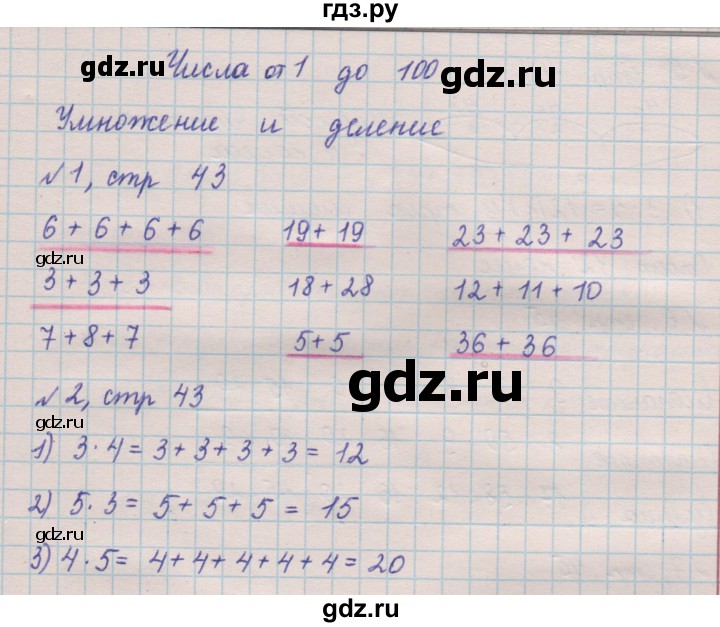 гдз.ру
gdz.ru Числа от 1 до 100 gdz.ru
Умножение и деление
№1, стр 43
6 + 6 + 6 + 6 19 + 19 23 + 23 + 23
gdz.ru
3 + 3 + 3 18 + 28 12 + 11 + 10
7 + 8 + 7 5 + 5 36 + 36
gdz.ru
№2, стр 43
gdz.ru
1) 3 · 4 = 3 + 3 + 3 + 3 = 12
2) 5 · 3 = 5 + 5 + 5 = 15
gdz.ru
3) 4 · 5 = 4 + 4 + 4 + 4 + 4 = 20
gdz.ru
gdz.ru